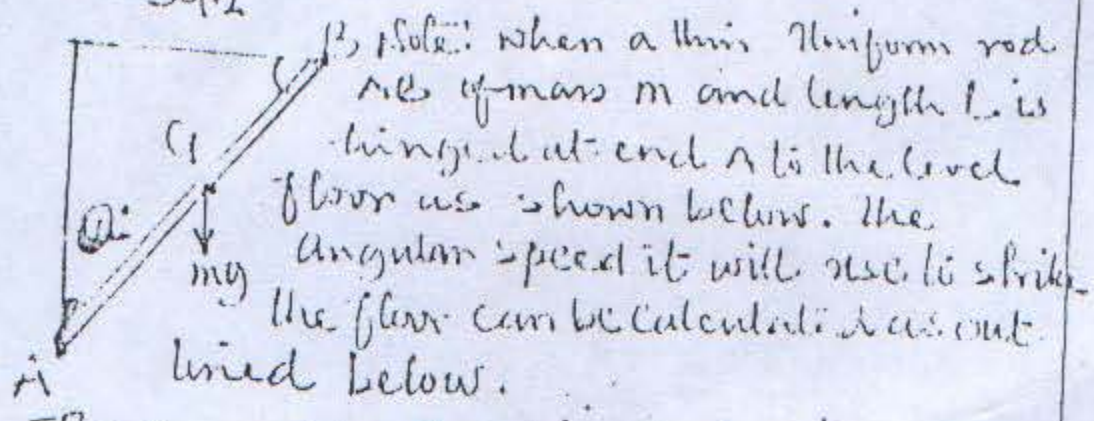 B, Note: when a thin Uniform rod
AB of mass m and length L is
hinged at end A to the level
G
floor as shown below. The
Angular speed it will use to strike
mg
the floor can be calculated as out
A
lined below.